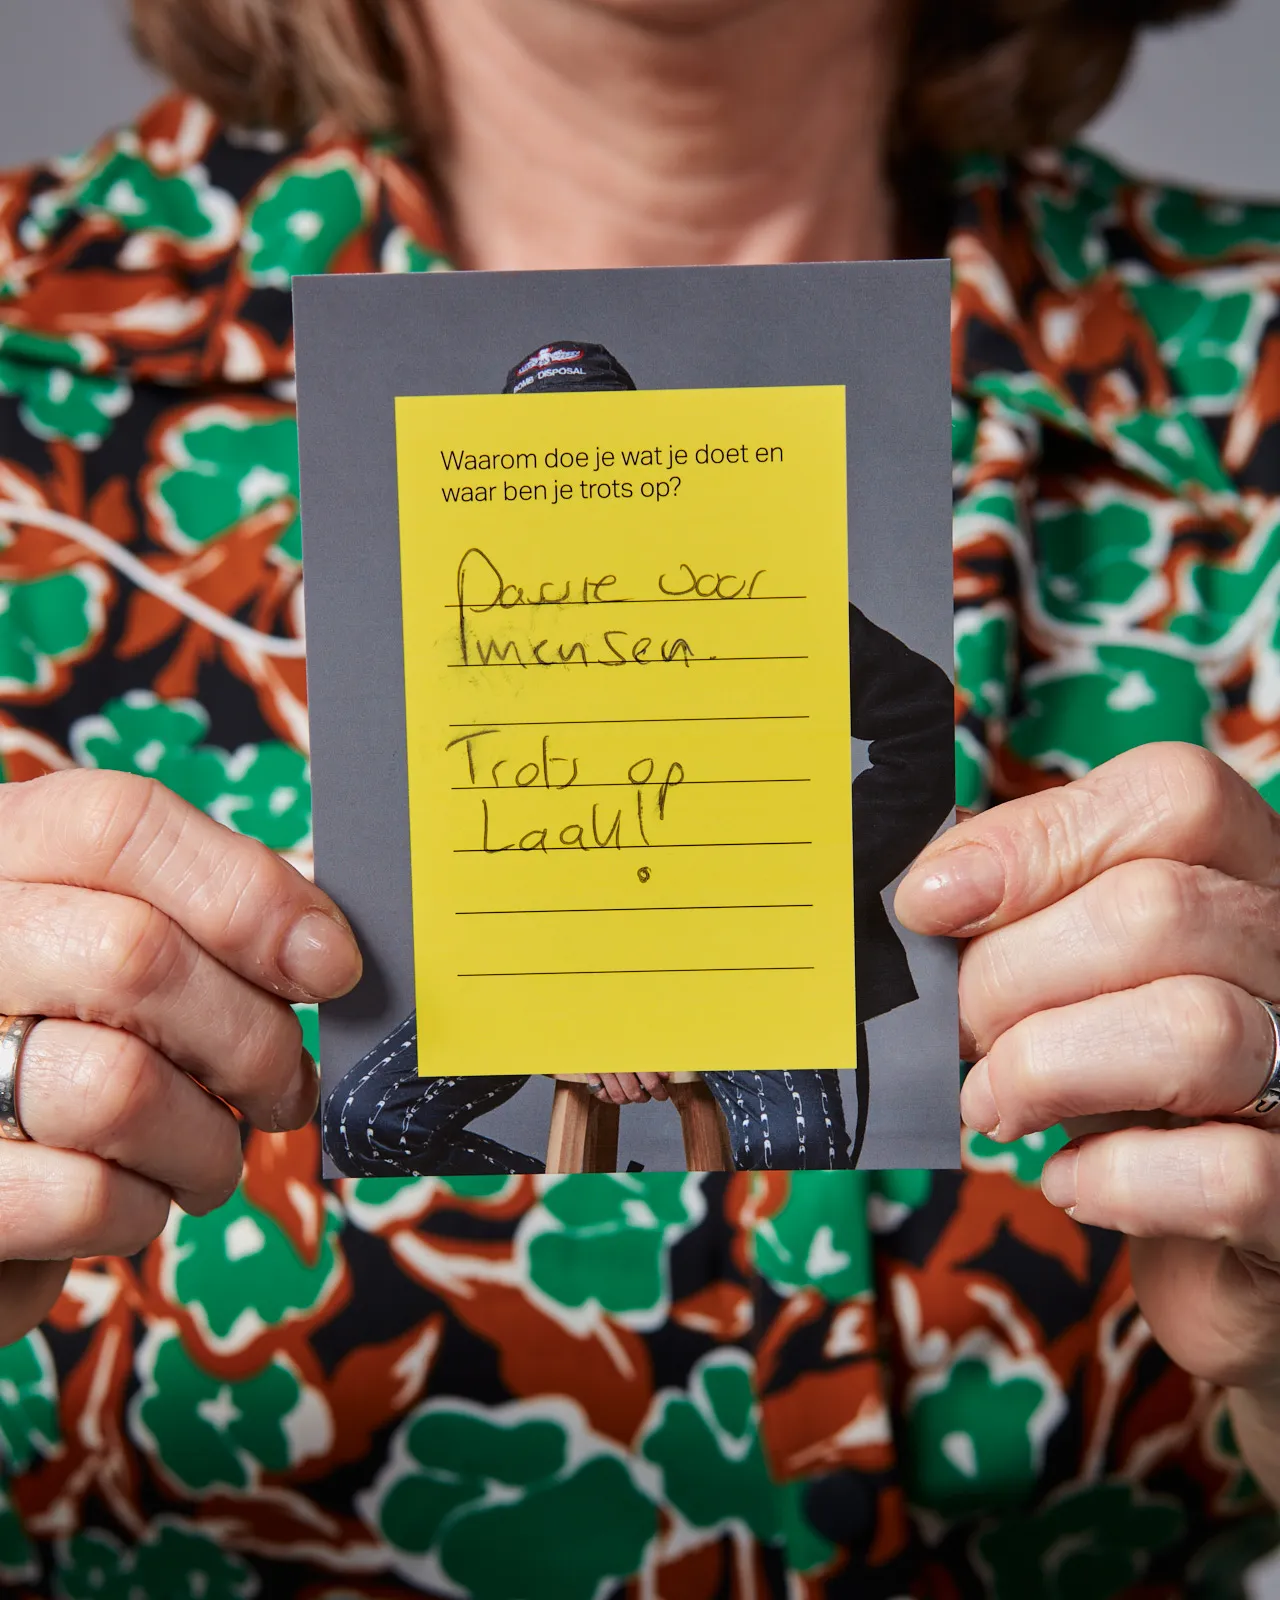 BOMB DISPOSAL
Waarom doe je wat je doet en
waar ben je trots op?
Passie voor
mensen.
Trots op
Laak!